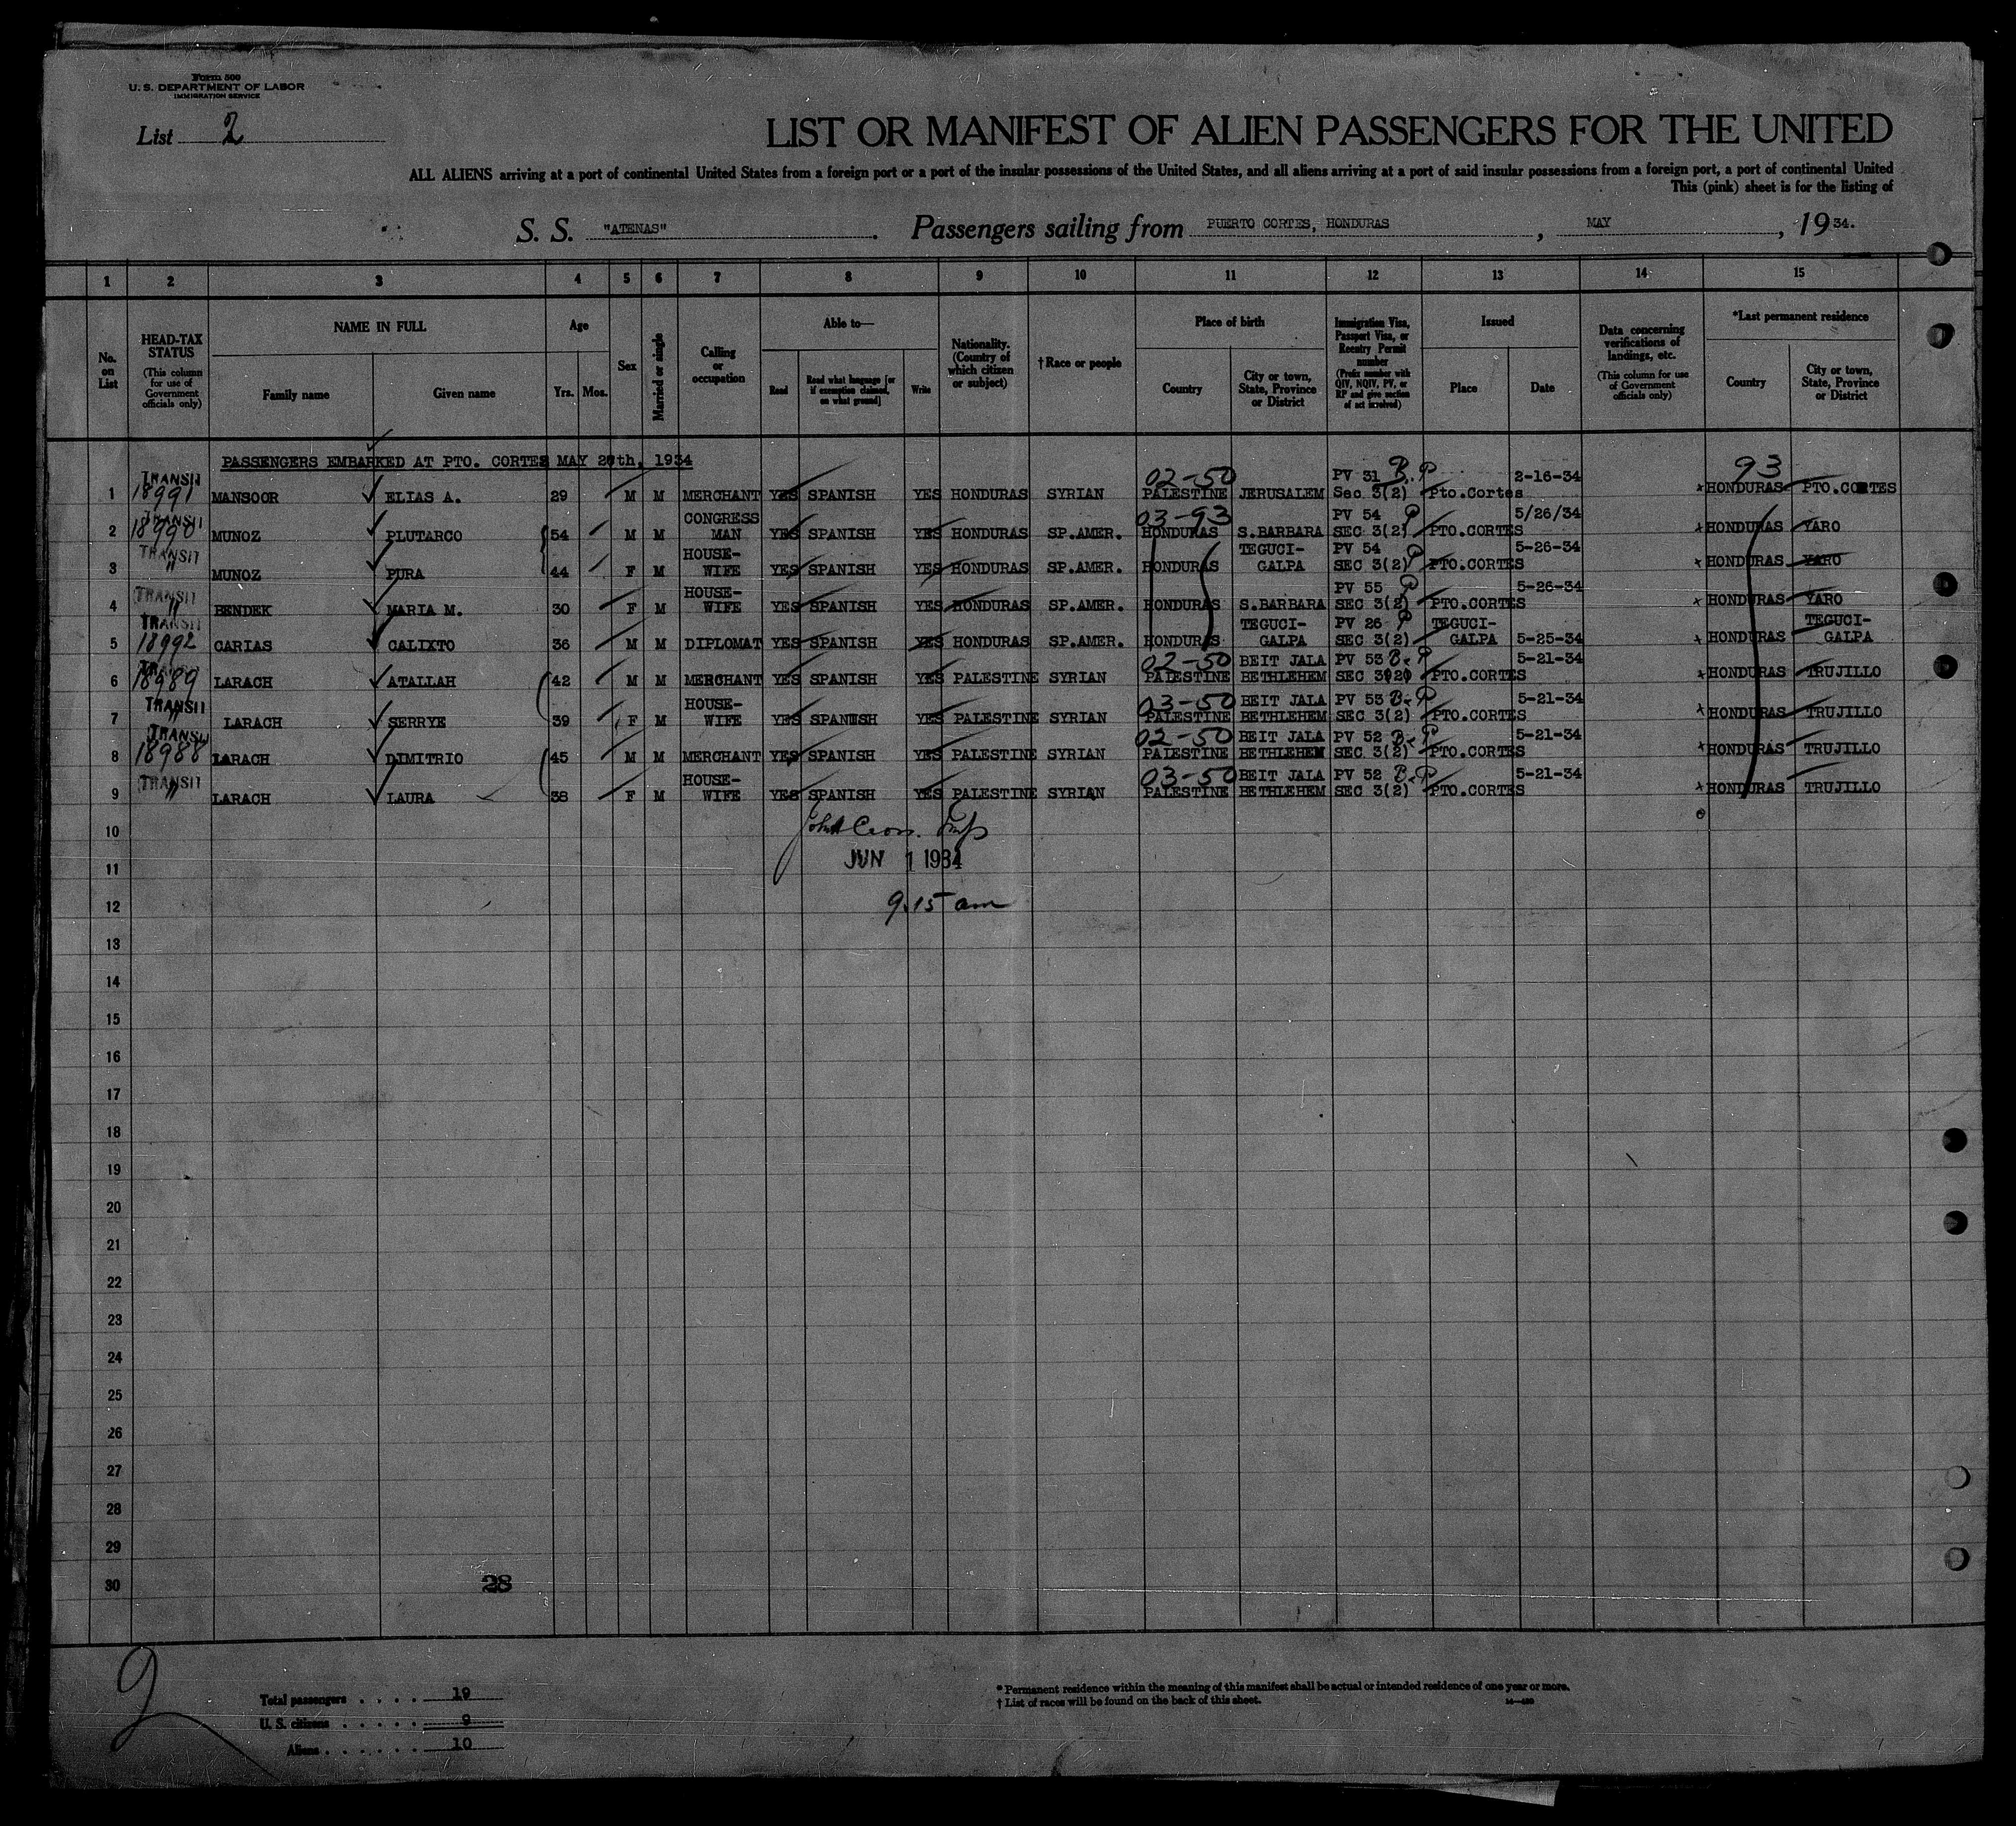 Form 500
U. S. DEPARTMENT OF LABOR
IMMIGRATION SERVICE
List 2
LIST OR MANIFEST OF ALIEN PASSENGERS FOR THE UNITED
ALL ALIENS arriving at a port of continental United States from a foreign port or a port of the insular possessions of the United States, and all aliens arriving at a port of said insular possessions from a foreign port, a port of continental United
This (pink) sheet is for the listing of
S. S. "ATENAS" . Passengers sailing from PUERTO CORTES, HONDURAS , MAY , 19 34.
1 2 3 4 5 6 7 8 9 10 11 12 13 14 15
No. on List
HEAD-TAX STATUS (This column for use of Government officials only)
NAME IN FULL
Family name
Given name
Age
Yrs. Mos.
Sex
Married or single
Calling or occupation
Able to—
Read
Read what language [or if exemption claimed, on what ground]
Write
Nationality. (Country of which citizen or subject)
† Race or people
Place of birth
Country
City or town, State, Province or District
Immigration Visa, Passport Visa, or Reentry Permit number (Prefix number with QIV, NQIV, PV, or RP and give section of act involved)
Issued
Place
Date
Data concerning verifications of landings, etc. (This column for use of Government officials only)
*Last permanent residence
Country
City or town, State, Province or District
PASSENGERS EMBARKED AT PTO. CORTES MAY 28th, 1934
1 TRANSIT 18991 MANSOOR ELIAS A. 29 M M MERCHANT YES SPANISH YES HONDURAS SYRIAN 02-50 PALESTINE JERUSALEM PV 31 B.P Sec 3(2) Pto.Cortes 2-16-34 93 HONDURAS PTO.CORTES
2 TRANSIT 18990 MUNOZ PLUTARCO 54 M M CONGRESS MAN YES SPANISH YES HONDURAS SP.AMER. 03-93 HONDURAS S.BARBARA PV 54 P SEC 3(2) PTO.CORTES 5/26/34 HONDURAS YARO
3 TRANSIT " MUNOZ PURA 44 F M HOUSE-WIFE YES SPANISH YES HONDURAS SP.AMER. HONDURAS TEGUCI-GALPA PV 54 P SEC 3(2) PTO.CORTES 5-26-34 HONDURAS YARO
4 TRANSIT " BENDEK MARIA M. 30 F M HOUSE-WIFE YES SPANISH YES HONDURAS SP.AMER. HONDURAS S.BARBARA PV 55 P SEC 3(2) PTO.CORTES 5-26-34 HONDURAS YARO
5 TRANSIT 18992 CARIAS CALIXTO 36 M M DIPLOMAT YES SPANISH YES HONDURAS SP.AMER. HONDURAS TEGUCI-GALPA PV 26 P SEC 3(2) TEGUCI-GALPA 5-25-34 HONDURAS TEGUCI-GALPA
6 TRANSIT 18989 LARACH ATALLAH 42 M M MERCHANT YES SPANISH YES PALESTINE SYRIAN 02-50 PALESTINE BEIT JALA BETHLEHEM PV 53 B.P SEC 3(2) PTO.CORTES 5-21-34 HONDURAS TRUJILLO
7 TRANSIT " LARACH SERRYE 39 F M HOUSE-WIFE YES SPANISH YES PALESTINE SYRIAN 03-50 PALESTINE BEIT JALA BETHLEHEM PV 53 B.P SEC 3(2) PTO.CORTES 5-21-34 HONDURAS TRUJILLO
8 TRANSIT 18988 LARACH DIMITRIO 45 M M MERCHANT YES SPANISH YES PALESTINE SYRIAN 02-50 PALESTINE BEIT JALA BETHLEHEM PV 52 B.P SEC 3(2) PTO.CORTES 5-21-34 HONDURAS TRUJILLO
9 TRANSIT " LARACH LAURA 38 F M HOUSE-WIFE YES SPANISH YES PALESTINE SYRIAN 03-50 PALESTINE BEIT JALA BETHLEHEM PV 52 B.P SEC 3(2) PTO.CORTES 5-21-34 HONDURAS TRUJILLO
10
JUN 1 1934
11
9.15 am
12
13
14
15
16
17
18
19
20
21
22
23
24
25
26
27
28
29
30 28
Total passengers . . . . 19
U. S. citizens . . . . . 9
Aliens . . . . . . . 10
* Permanent residence within the meaning of this manifest shall be actual or intended residence of one year or more.
† List of races will be found on the back of this sheet.